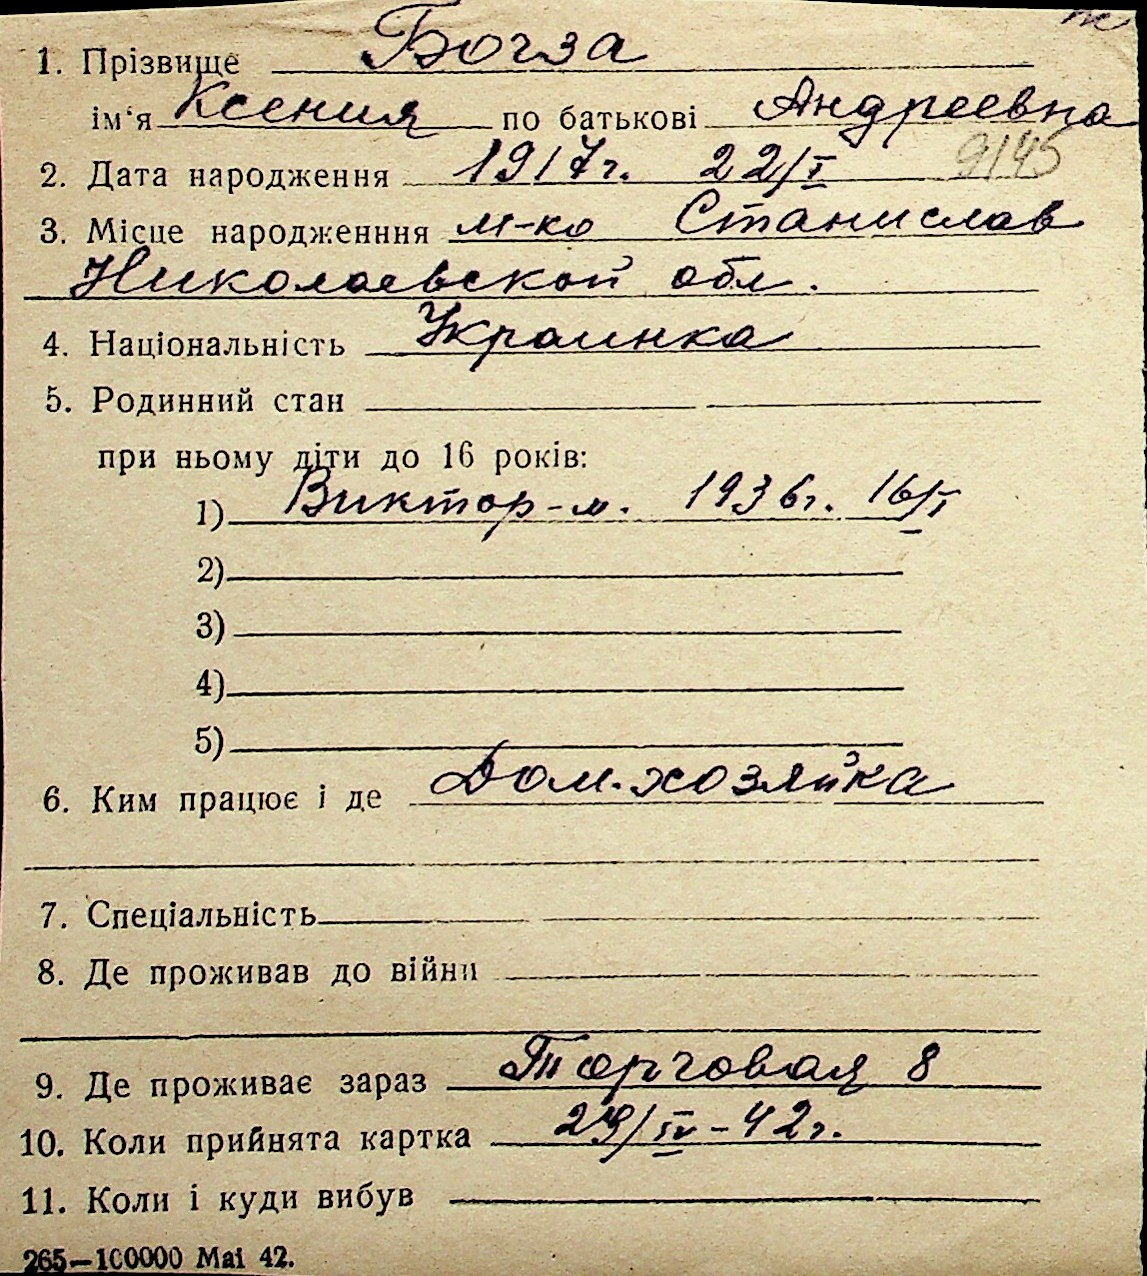 1. Прізвище Богза
ім‘я Ксения по батькові Андреевна
9/45
2. Дата народження 1917г. 22/I
3. Місце народженння м-ко Станислав
Николаевской обл.
4. Національність Украинка
5. Родинний стан
при ньому діти до 16 років:
1) Виктор-м. 1936г. 16/I
2)
3)
4)
5)
6. Ким працює і де Дом.хозяйка
7. Спеціальність
8. Де проживав до війни
9. Де проживає зараз Торговая 8
10. Коли прийнята картка 29/IV-42г.
11. Коли і куди вибув
265—100000 Mai 42.